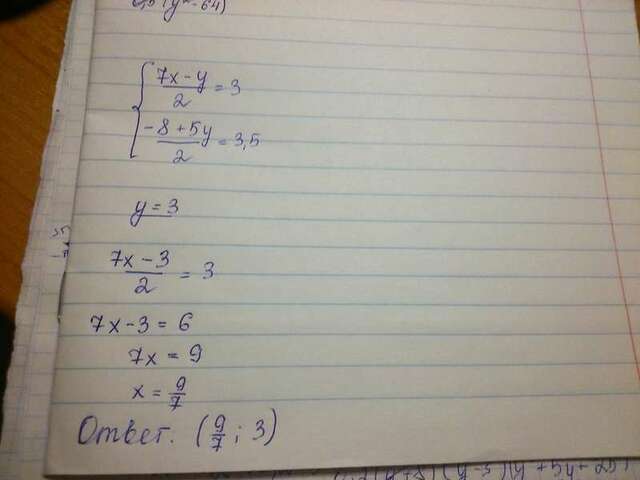 (y² - 64)
7x - y / 2 = 3
-8 + 5y / 2 = 3,5
y = 3
7x - 3 / 2 = 3
7x - 3 = 6
7x = 9
x = 9/7
Ответ. (9/7 ; 3)
(y - 5)(y + 5y + 25)